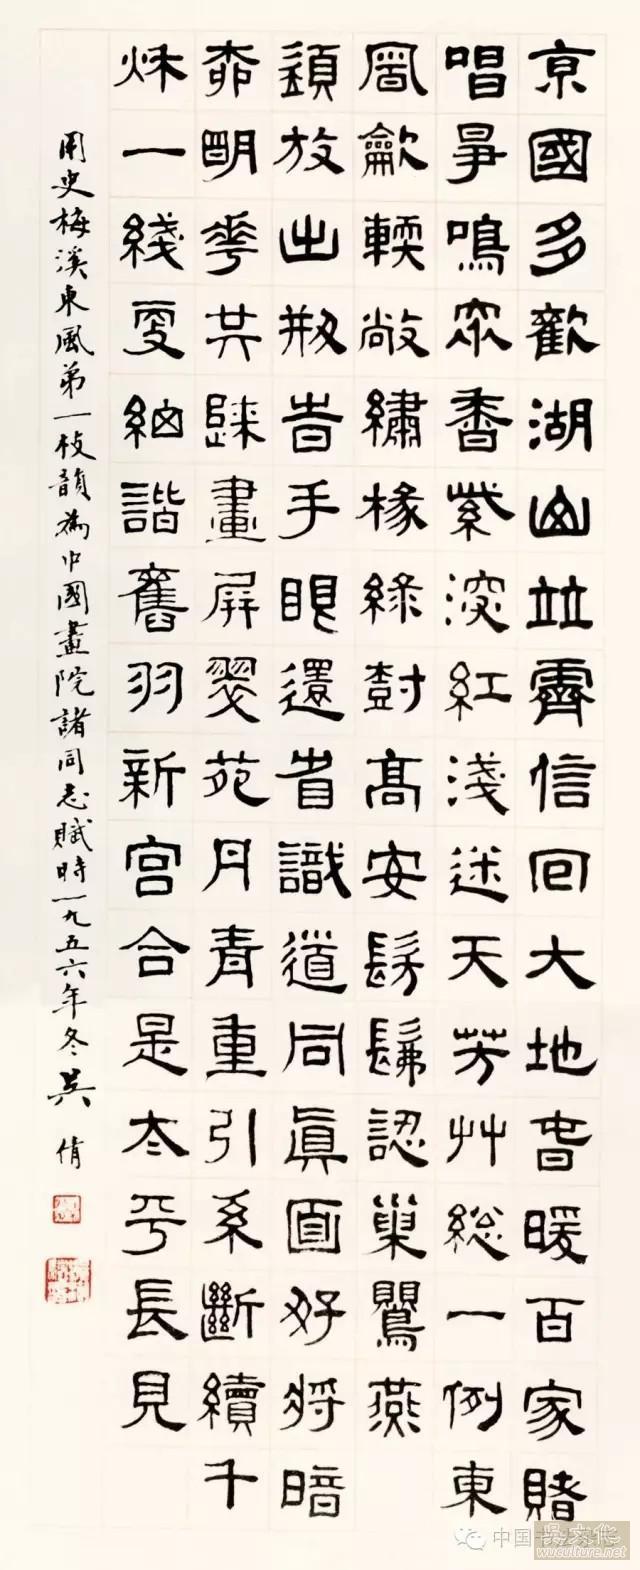 京國多歡湖山竝霽信回大地旾暖百家賭
唱爭鳴眾香紫深紅淺迷天芳艸總一例東
風龡輭敞繡椽綠樹高安髣髴認巢鶯燕
須放出刱旹手眼還省識道同眞面好將暗
柳朙花共畫屏翠苑丹青重引系斷續千
秋一綫更紬諧舊羽新宮合是太平長見
用史梅溪東風第一枝韻為中國畫院諸同志賦時一九五六年冬吳倩
中国书法
吴文化
wuculture.net